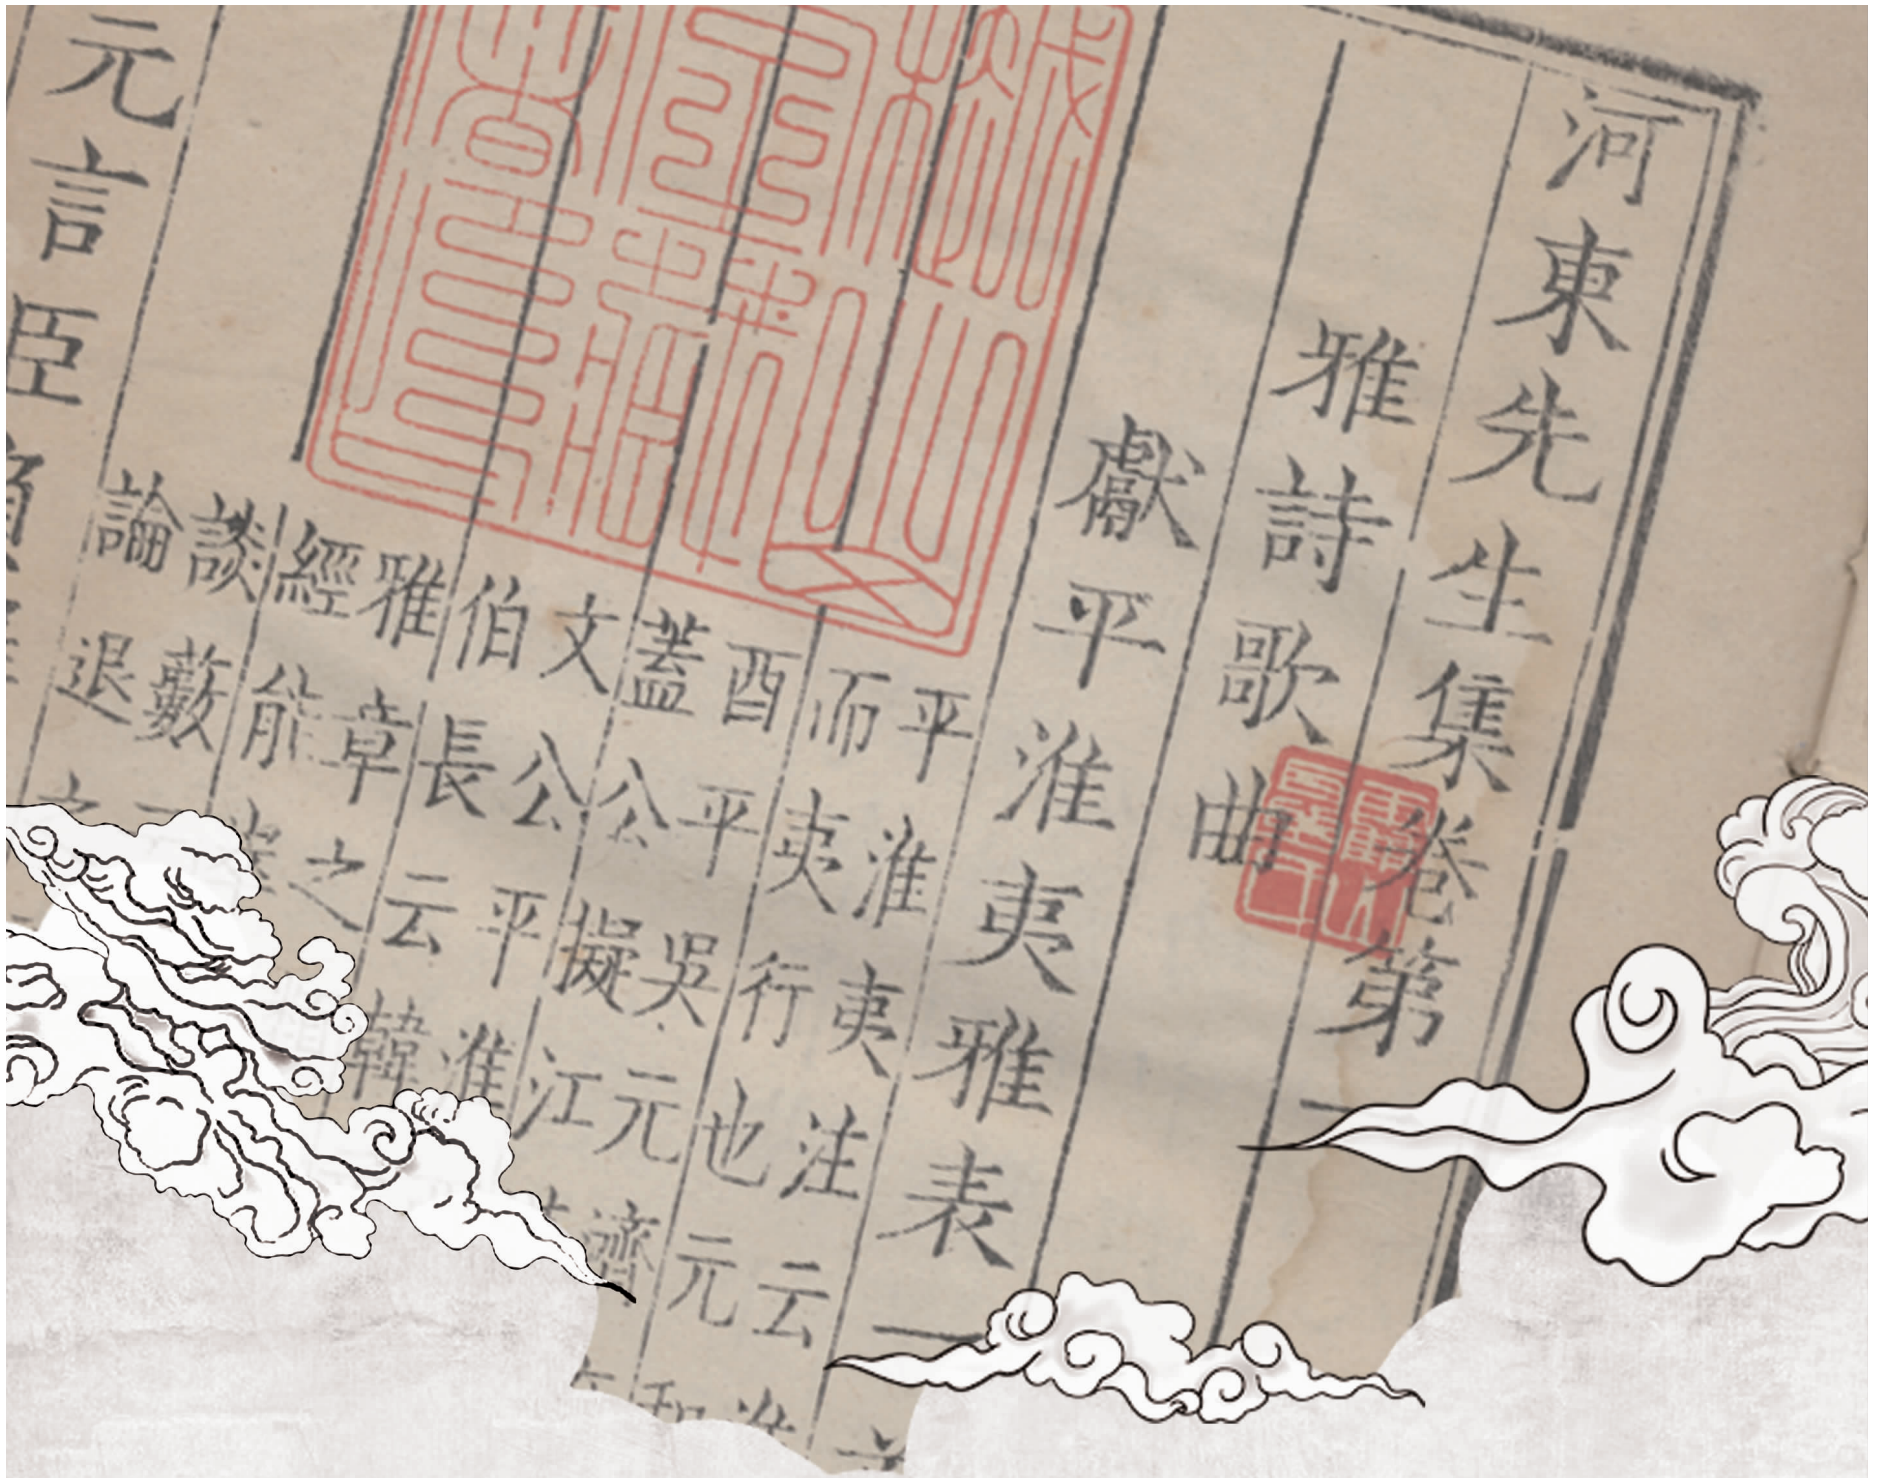 河東先生集卷第一
雅詩歌曲
獻平淮夷雅表一
平淮夷注云淮
而夷行也元和
酉平吳元濟
蓋公擬江
文公平淮
伯長云韓
雅章之
經能
談藪
論退之
元言臣負